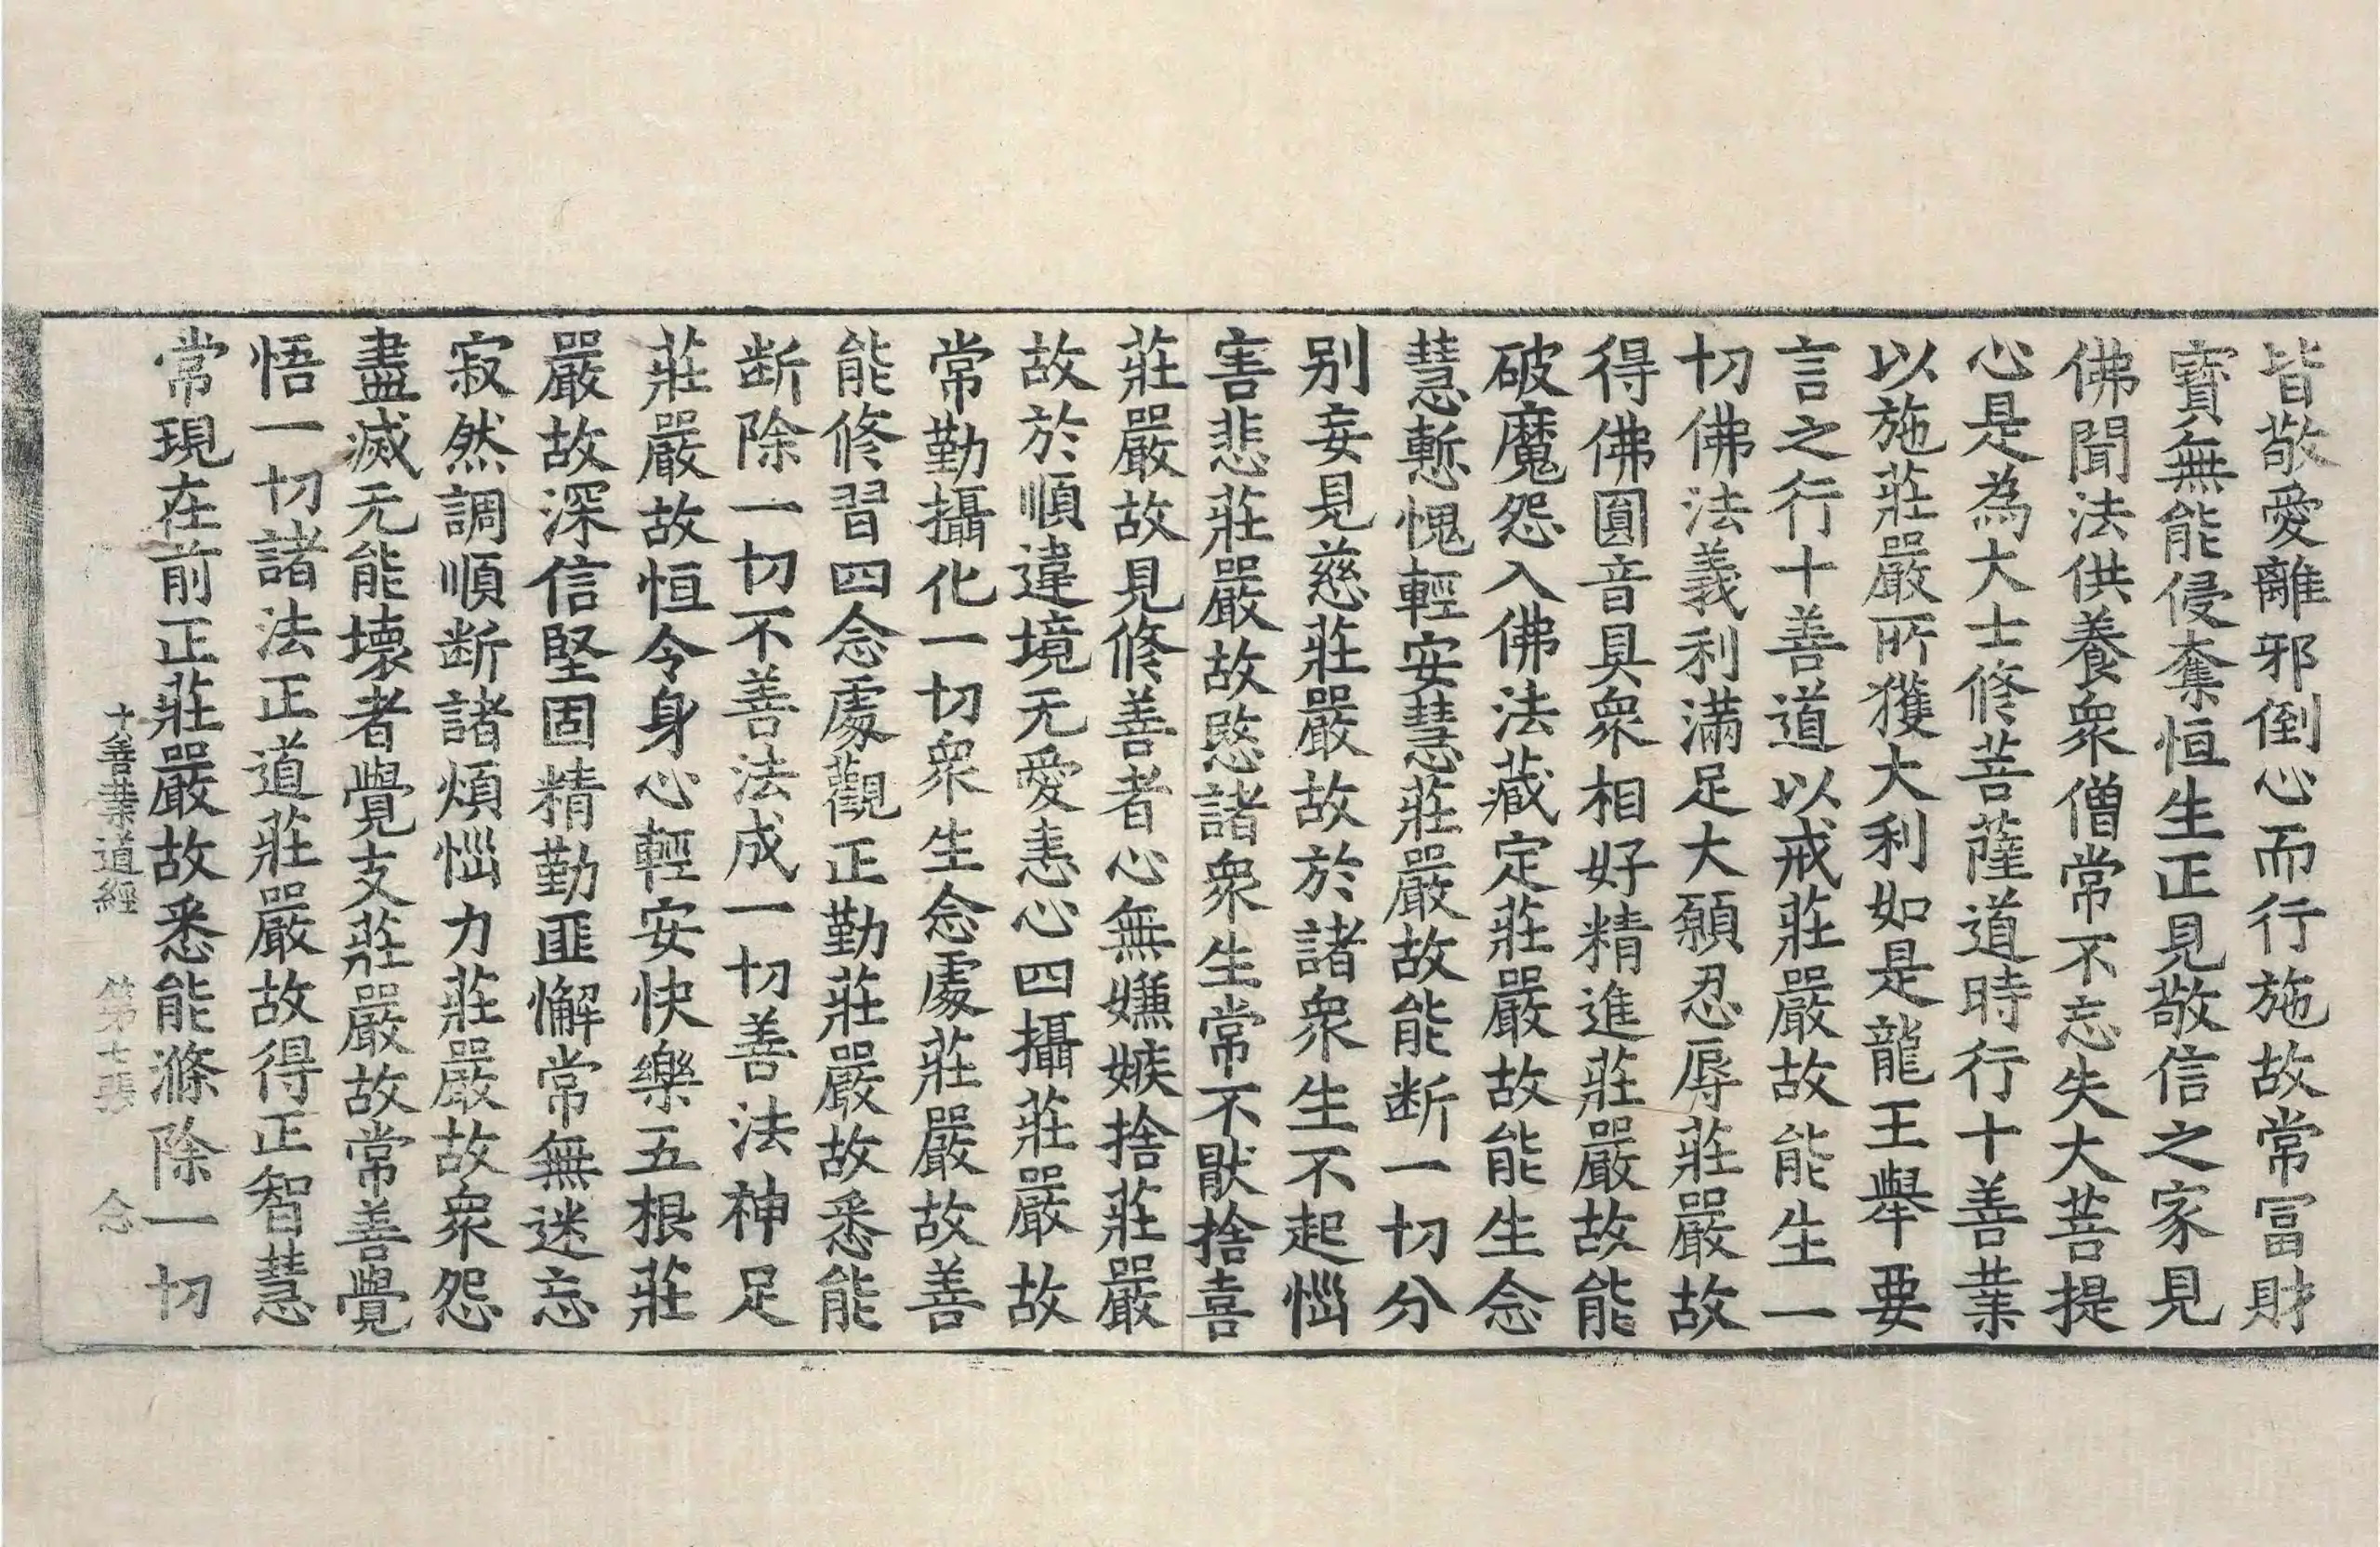 皆敬愛離邪倒心而行施故常冨財
寳無能侵奪恒生正見敬信之家見
佛聞法供養衆僧常不忘失大菩提
心是為大士修菩薩道時行十善業
以施莊嚴所獲大利如是龍王舉要
言之行十善道以戒莊嚴故能生一
切佛法義利滿足大願忍辱莊嚴故
得佛圓音具衆相好精進莊嚴故能
破魔怨入佛法藏定莊嚴故能生念
慧慙愧輕安慧莊嚴故能断一切分
别妄見慈莊嚴故於諸衆生不起惱
害悲莊嚴故愍諸衆生常不猒捨喜
莊嚴故見修善者心無嫌嫉捨莊嚴
故於順違境无愛恚心四攝莊嚴故
常勤攝化一切衆生念處莊嚴故善
能修習四念處觀正勤莊嚴故悉能
断除一切不善法成一切善法神足
莊嚴故恒令身心輕安快樂五根莊
嚴故深信堅固精勤匪懈常無迷忘
寂然調順断諸煩惱力莊嚴故衆怨
盡滅无能壞者覺支莊嚴故常善覺
悟一切諸法正道莊嚴故得正智慧
常現在前正莊嚴故悉能滌除一切
十善業道經 第七張 念